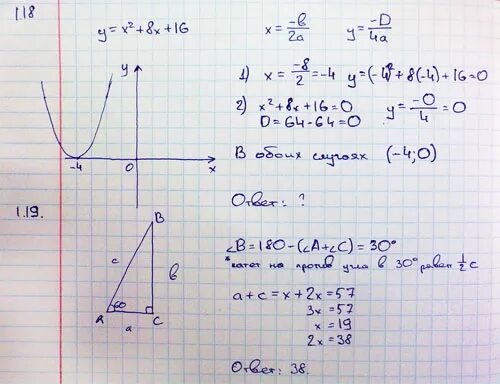 1.18
y = x² + 8x + 16
x = -в/2a    y = -D/4a
1) x = -8/2 = -4    y = (-4)² + 8(-4) + 16 = 0
2) x² + 8x + 16 = 0    y = -0/4 = 0
D = 64 - 64 = 0
В обоих случаях (-4; 0)
Ответ: ?
y
-4
0
x
1.19.
B
c
в
60
A
a
C
∠B = 180 - (∠A + ∠C) = 30°
*катет на против угла в 30° равен 1/2 c
a + c = x + 2x = 57
3x = 57
x = 19
2x = 38
Ответ: 38.